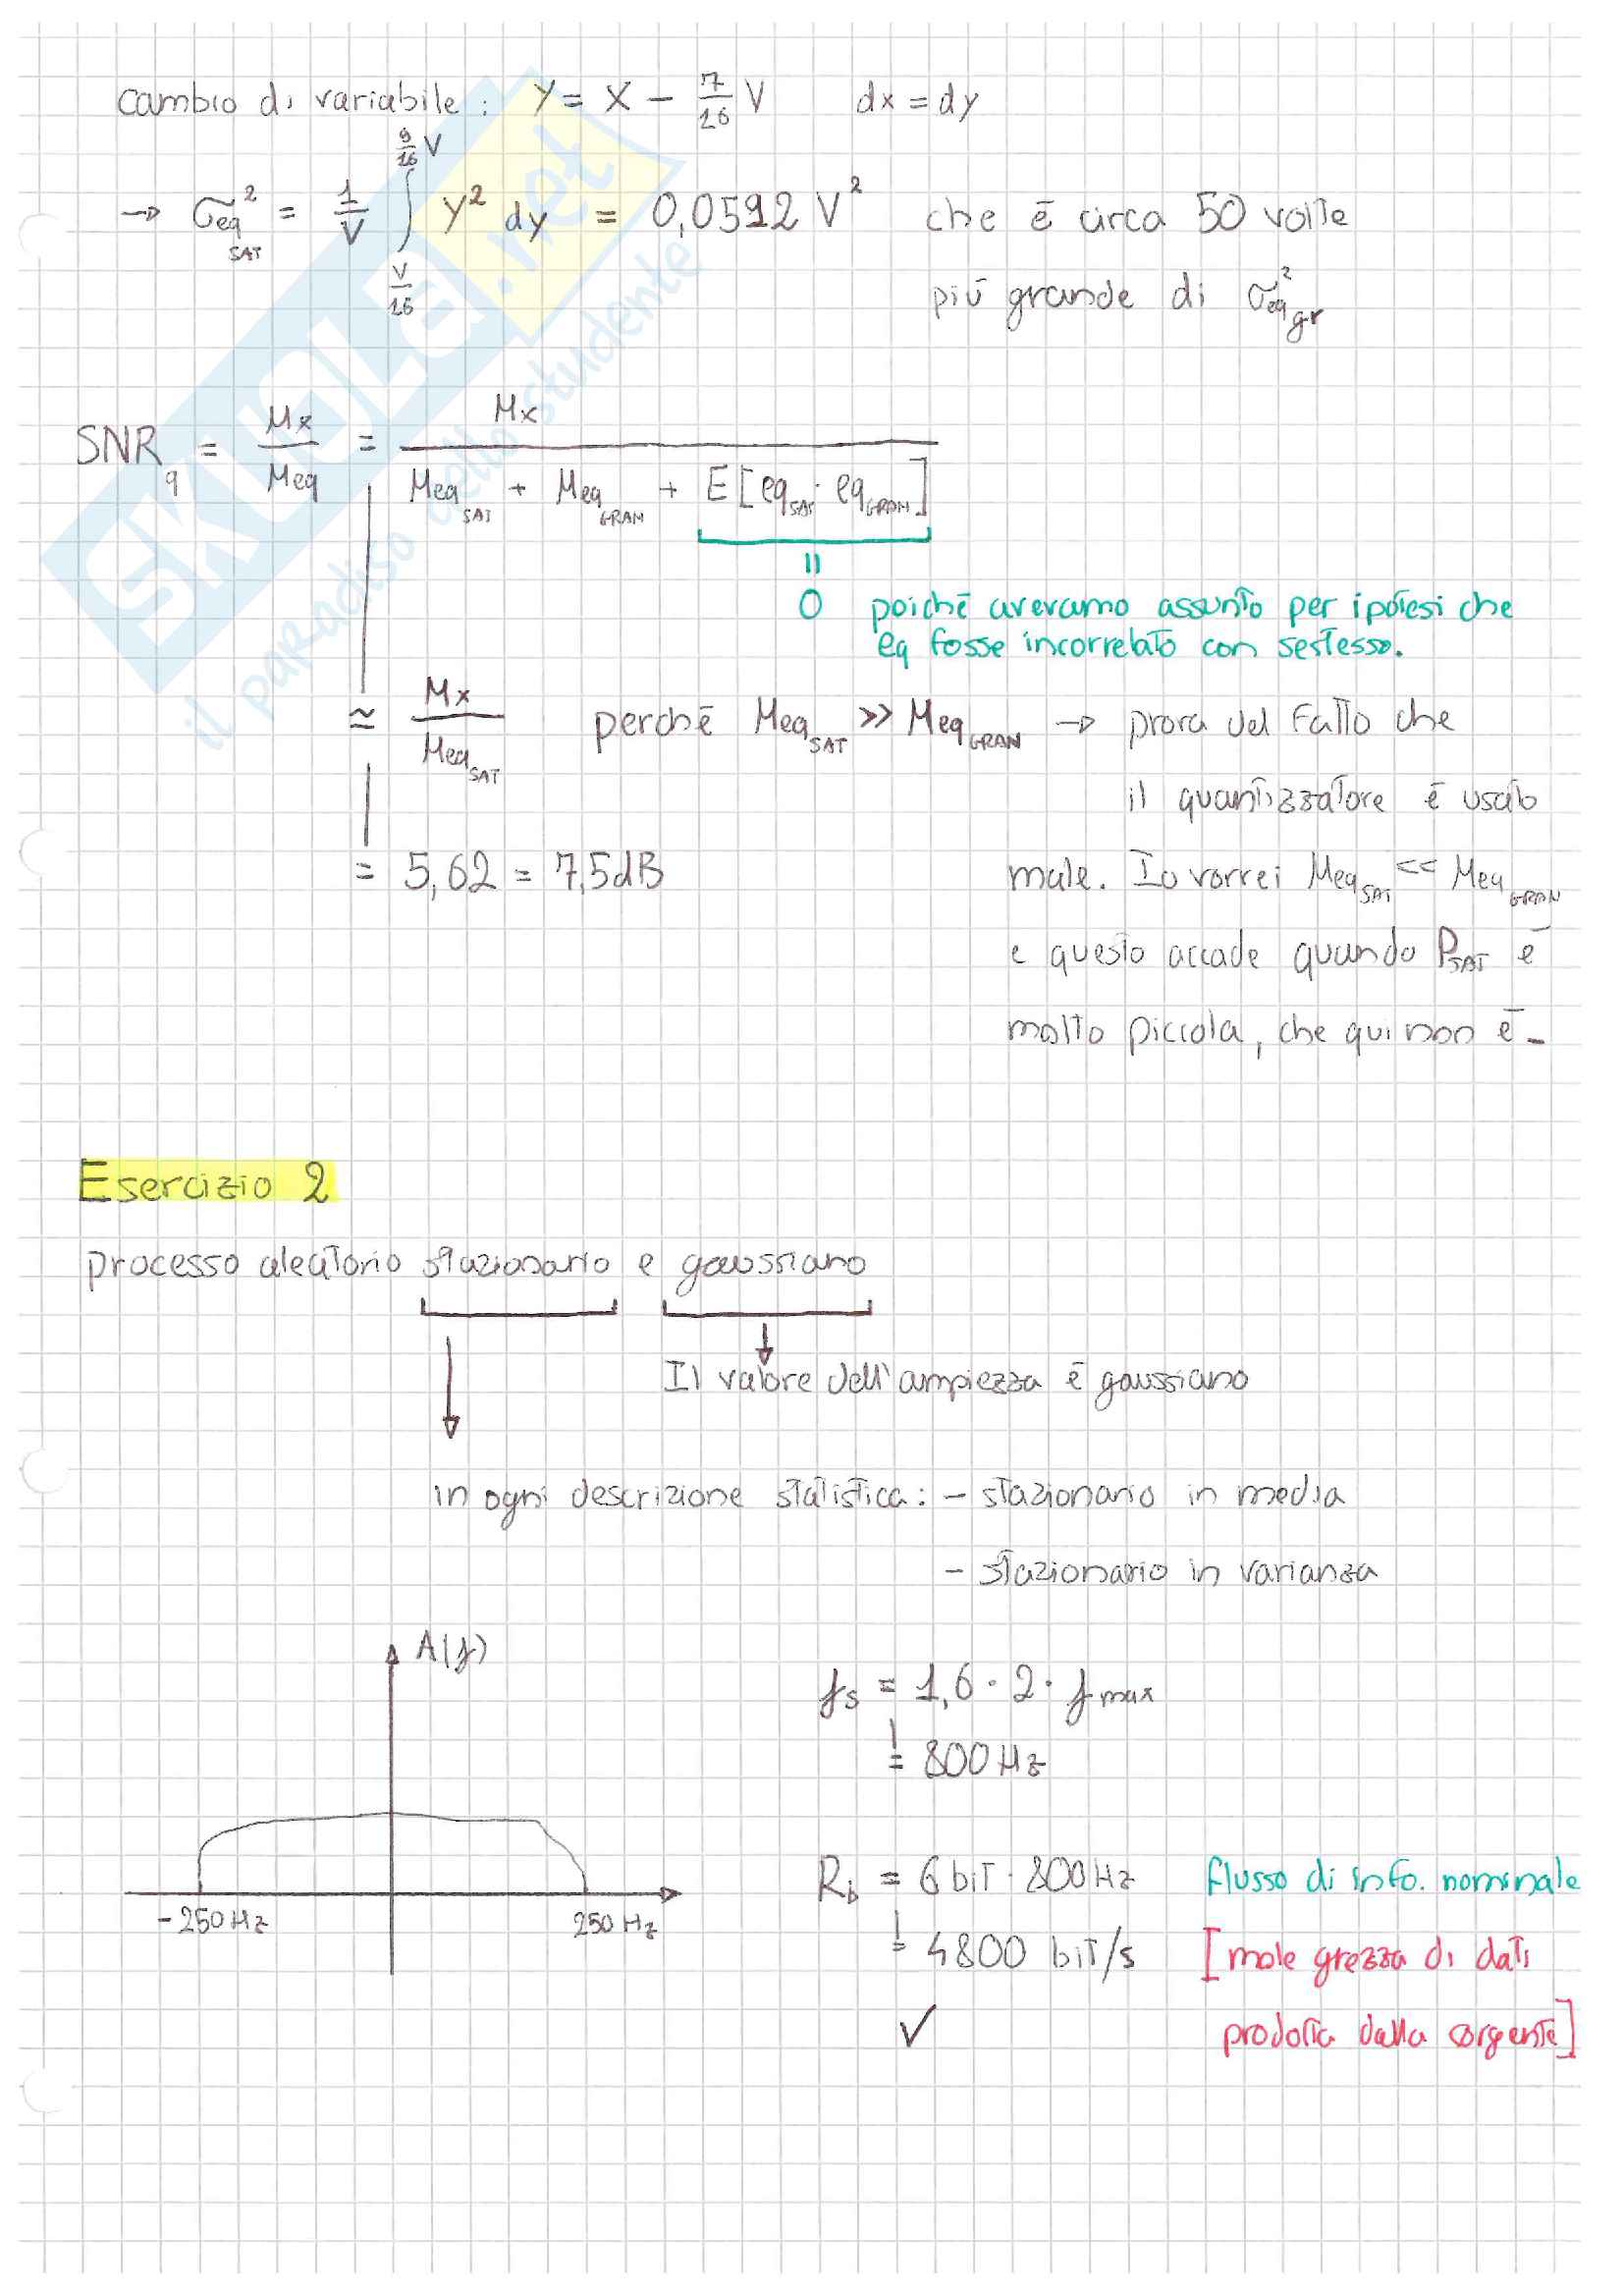 cambio di variabile: Y = X - 7/16 V dx = dy
→ σ²eq SAT = 1/V ∫_{V/16}^{9/16 V} y² dy = 0,0592 V² che è circa 50 volte
più grande di σ²eq gr
SNRq = Mx/Meq = Mx / (Meq SAT + Meq GRAN + E[eq SAT · eq GRAN])
= 0 poichè avevamo assunto per ipotesi che
eq fosse incorrelato con sestesso.
≈ Mx/Meq SAT perchè Meq SAT >> Meq GRAN → prova del fatto che
il quantizzatore è usato
= 5,62 = 7,5dB male. Io vorrei Meq SAT << Meq GRAN
e questo accade quando PSAT è
molto piccola, che qui non è -
Esercizio 2
processo aleatorio stazionario e gaussiano
Il valore dell'ampiezza è gaussiano
in ogni descrizione statistica: - stazionario in media
- stazionario in varianza
A(f)
fs = 1,6 · 2 · fmax
= 800 Hz
Rb = 6 bit · 800 Hz flusso di info. nominale
-250 Hz 250 Hz
= 4800 bit/s [mole grezza di dati
✓ prodotta dalla sorgente]
SKUOLA.net
il paradiso dello studente